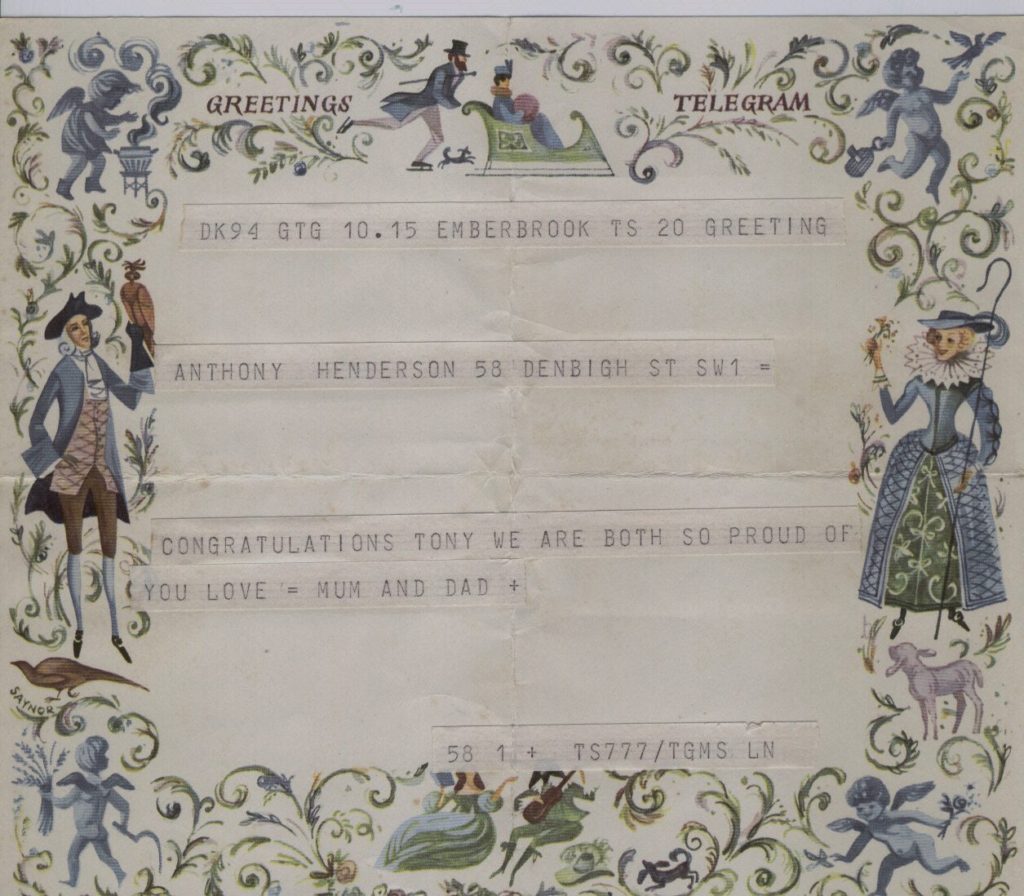 GREETINGS TELEGRAM
DK94 GTG 10.15 EMBERBROOK TS 20 GREETING
ANTHONY HENDERSON 58 DENBIGH ST SW1 =
CONGRATULATIONS TONY WE ARE BOTH SO PROUD OF
YOU LOVE = MUM AND DAD +
SAYNOR
58 1 + TS777/TGMS LN